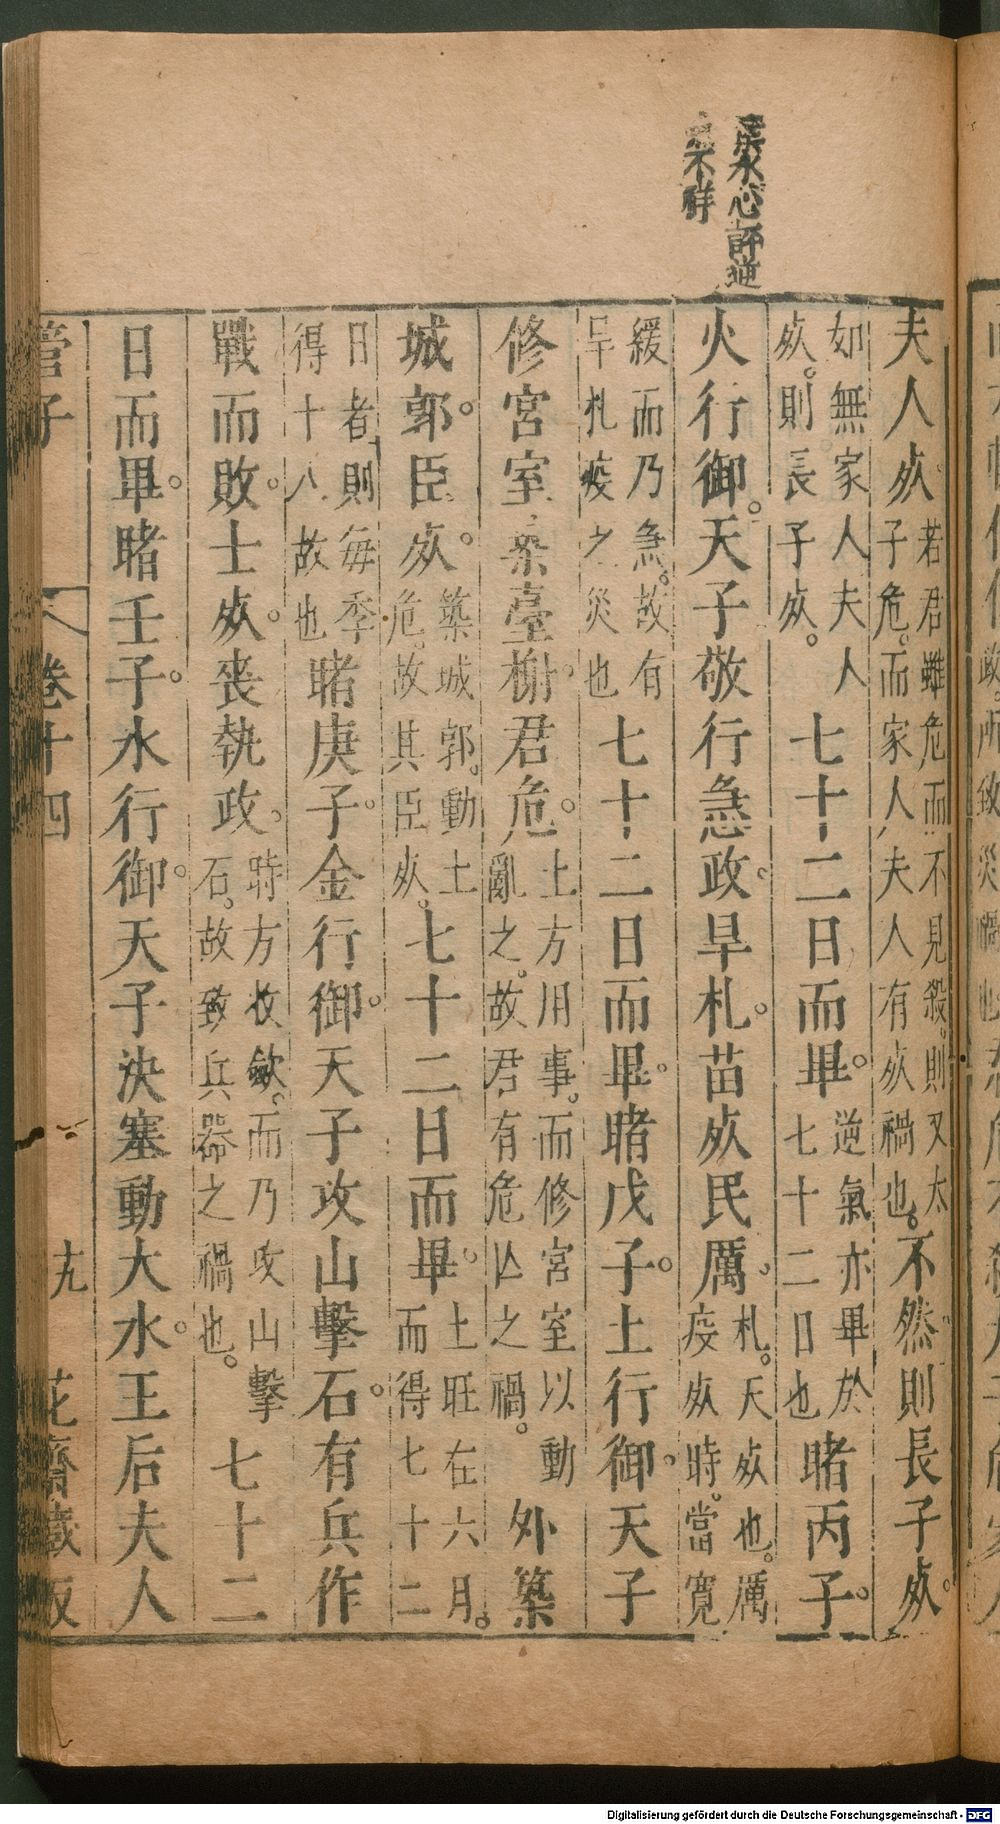 水心評逆
不祥
夫人死若君雖危而不見殺。則又太
子危。而家人夫人有死禍也。不然則長子死。
如無家人夫人
死。則長子死。七十二日而畢。逆氣亦畢於
七十二日也睹丙子。
火行御。天子敬行急政。旱札。苗死民厲。札。夭死也。厲
疫死時。當寬
緩而乃急。故有
旱札疫之災也七十二日而畢。睹戊子。土行御。天子
修宮室築臺榭。君危。土方用事。而修宮室以動
亂之。故君有危亾之禍。外築
城郭。臣死。築城郭。動土
危。故其臣死。七十二日而畢。土旺在六月。
而得七十二
日者則每季
得十八故也睹庚子。金行御。天子攻山擊石。有兵作
戰而敗。士死。喪執政。時方收斂。而乃攻山擊
石。故致兵器之禍也。七十二
日而畢。睹壬子。水行御。天子決塞動大水。王后夫人
管子 卷十四 十九 花齋藏板
Digitalisierung gefördert durch die Deutsche Forschungsgemeinschaft - DFG